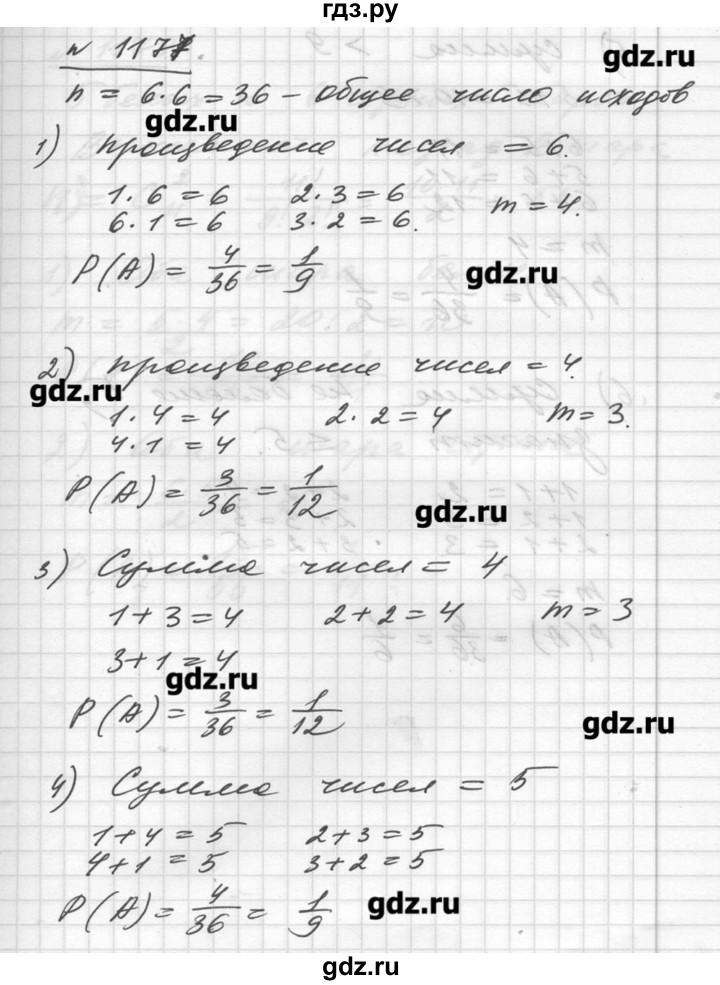 гдз.ру
gdz.ru
N 1177.
n = 6·6 = 36 – общее число исходов
gdz.ru
1) произведение чисел = 6.
1·6 = 6 2·3 = 6
6·1 = 6 3·2 = 6. m = 4.
P(A) = 4/36 = 1/9
gdz.ru
2) произведение чисел = 4.
gdz.ru
1·4 = 4 2·2 = 4 m = 3.
4·1 = 4
P(A) = 3/36 = 1/12
gdz.ru
3) Сумма чисел = 4
1+3 = 4 2+2 = 4 m = 3
3+1 = 4
gdz.ru
P(A) = 3/36 = 1/12
gdz.ru
4) Сумма чисел = 5
1+4 = 5 2+3 = 5
4+1 = 5 3+2 = 5
P(A) = 4/36 = 1/9
gdz.ru
gdz.ru